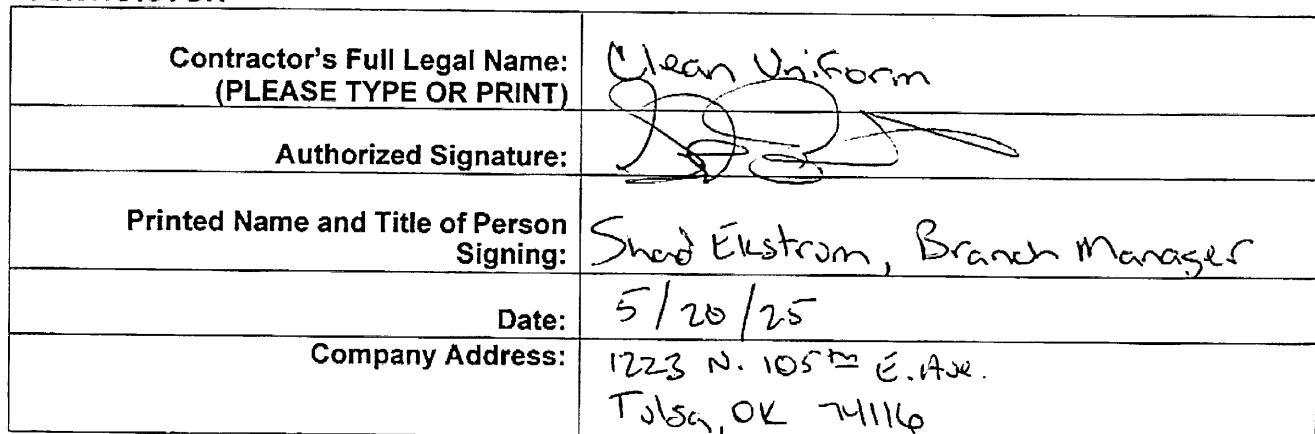 Contractor's Full Legal Name:
(PLEASE TYPE OR PRINT)
Clean Uniform
Authorized Signature:
Printed Name and Title of Person
Signing:
Shad Ekstrom, Branch Manager
Date:
5/20/25
Company Address:
1223 N. 105th E. Ave.
Tulsa, OK 74116